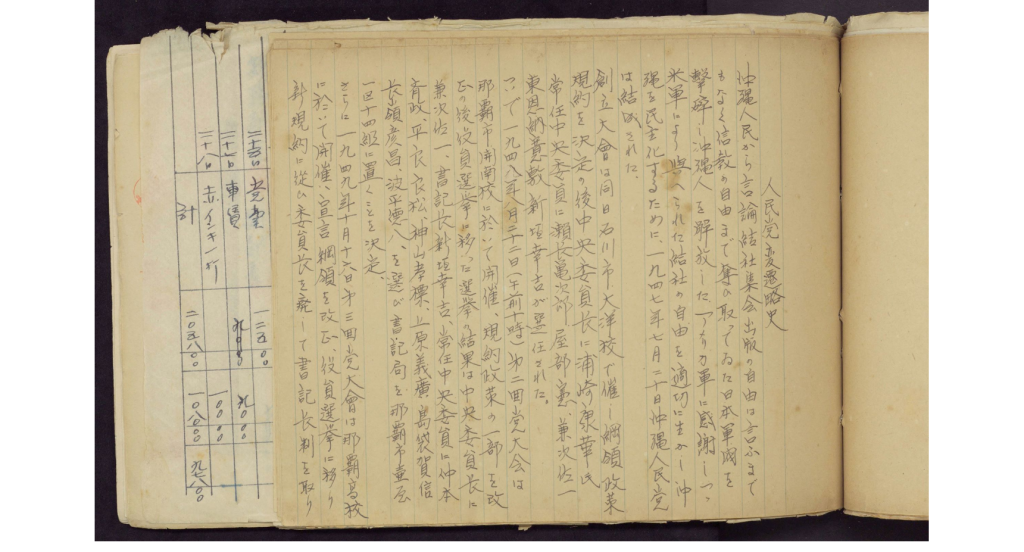 人民党変遷略史
沖縄人民から言論結社集会出版の自由は言ふまで
もなく信教の自由まで奪ひ取ってゐた日本軍閥を
撃砕し沖縄人を解放した アメリカ軍に感謝しつゝ
米軍により與へられた結社の自由を適切に生かし沖
縄を民主化するために、一九四七年七月二十日沖縄人民党
は結成された。
創立大會は同日石川市大洋校で催し綱領政策
規約を決定の後中央委員長に浦崎康華氏
常任中央委員に瀬長亀次郎 屋部憲、兼次佐一
東恩納寛敷 新垣幸吉が選任された。
ついで一九四八年八月二十二日(午前十時)第二回党大会は
那覇市開南校に於いて開催、規約政策の一部を改
正の後役員選挙に移った選挙の結果は中央委員長に
兼次佐一、書記長新垣幸吉、常任中央委員に仲本
育政、平良良松、神山孝標、上原義廣 島袋賀信
長嶺彦昌、波平憲八、を選び書記局を那覇市壷屋
一区十四組に置くことを決定
さらに一九四九年十月十六日第三回党大會は那覇高校
に於いて開催、宣言綱領を改正 役員選挙に移り
新規約に從ひ委員長を廃して書記長制を取り
党量 一二五〇〇
車賃 九〇〇〇 九〇〇〇
二十八日 赤インキ 一〇〇〇
計 二〇五八〇 一〇八〇〇 九七八〇